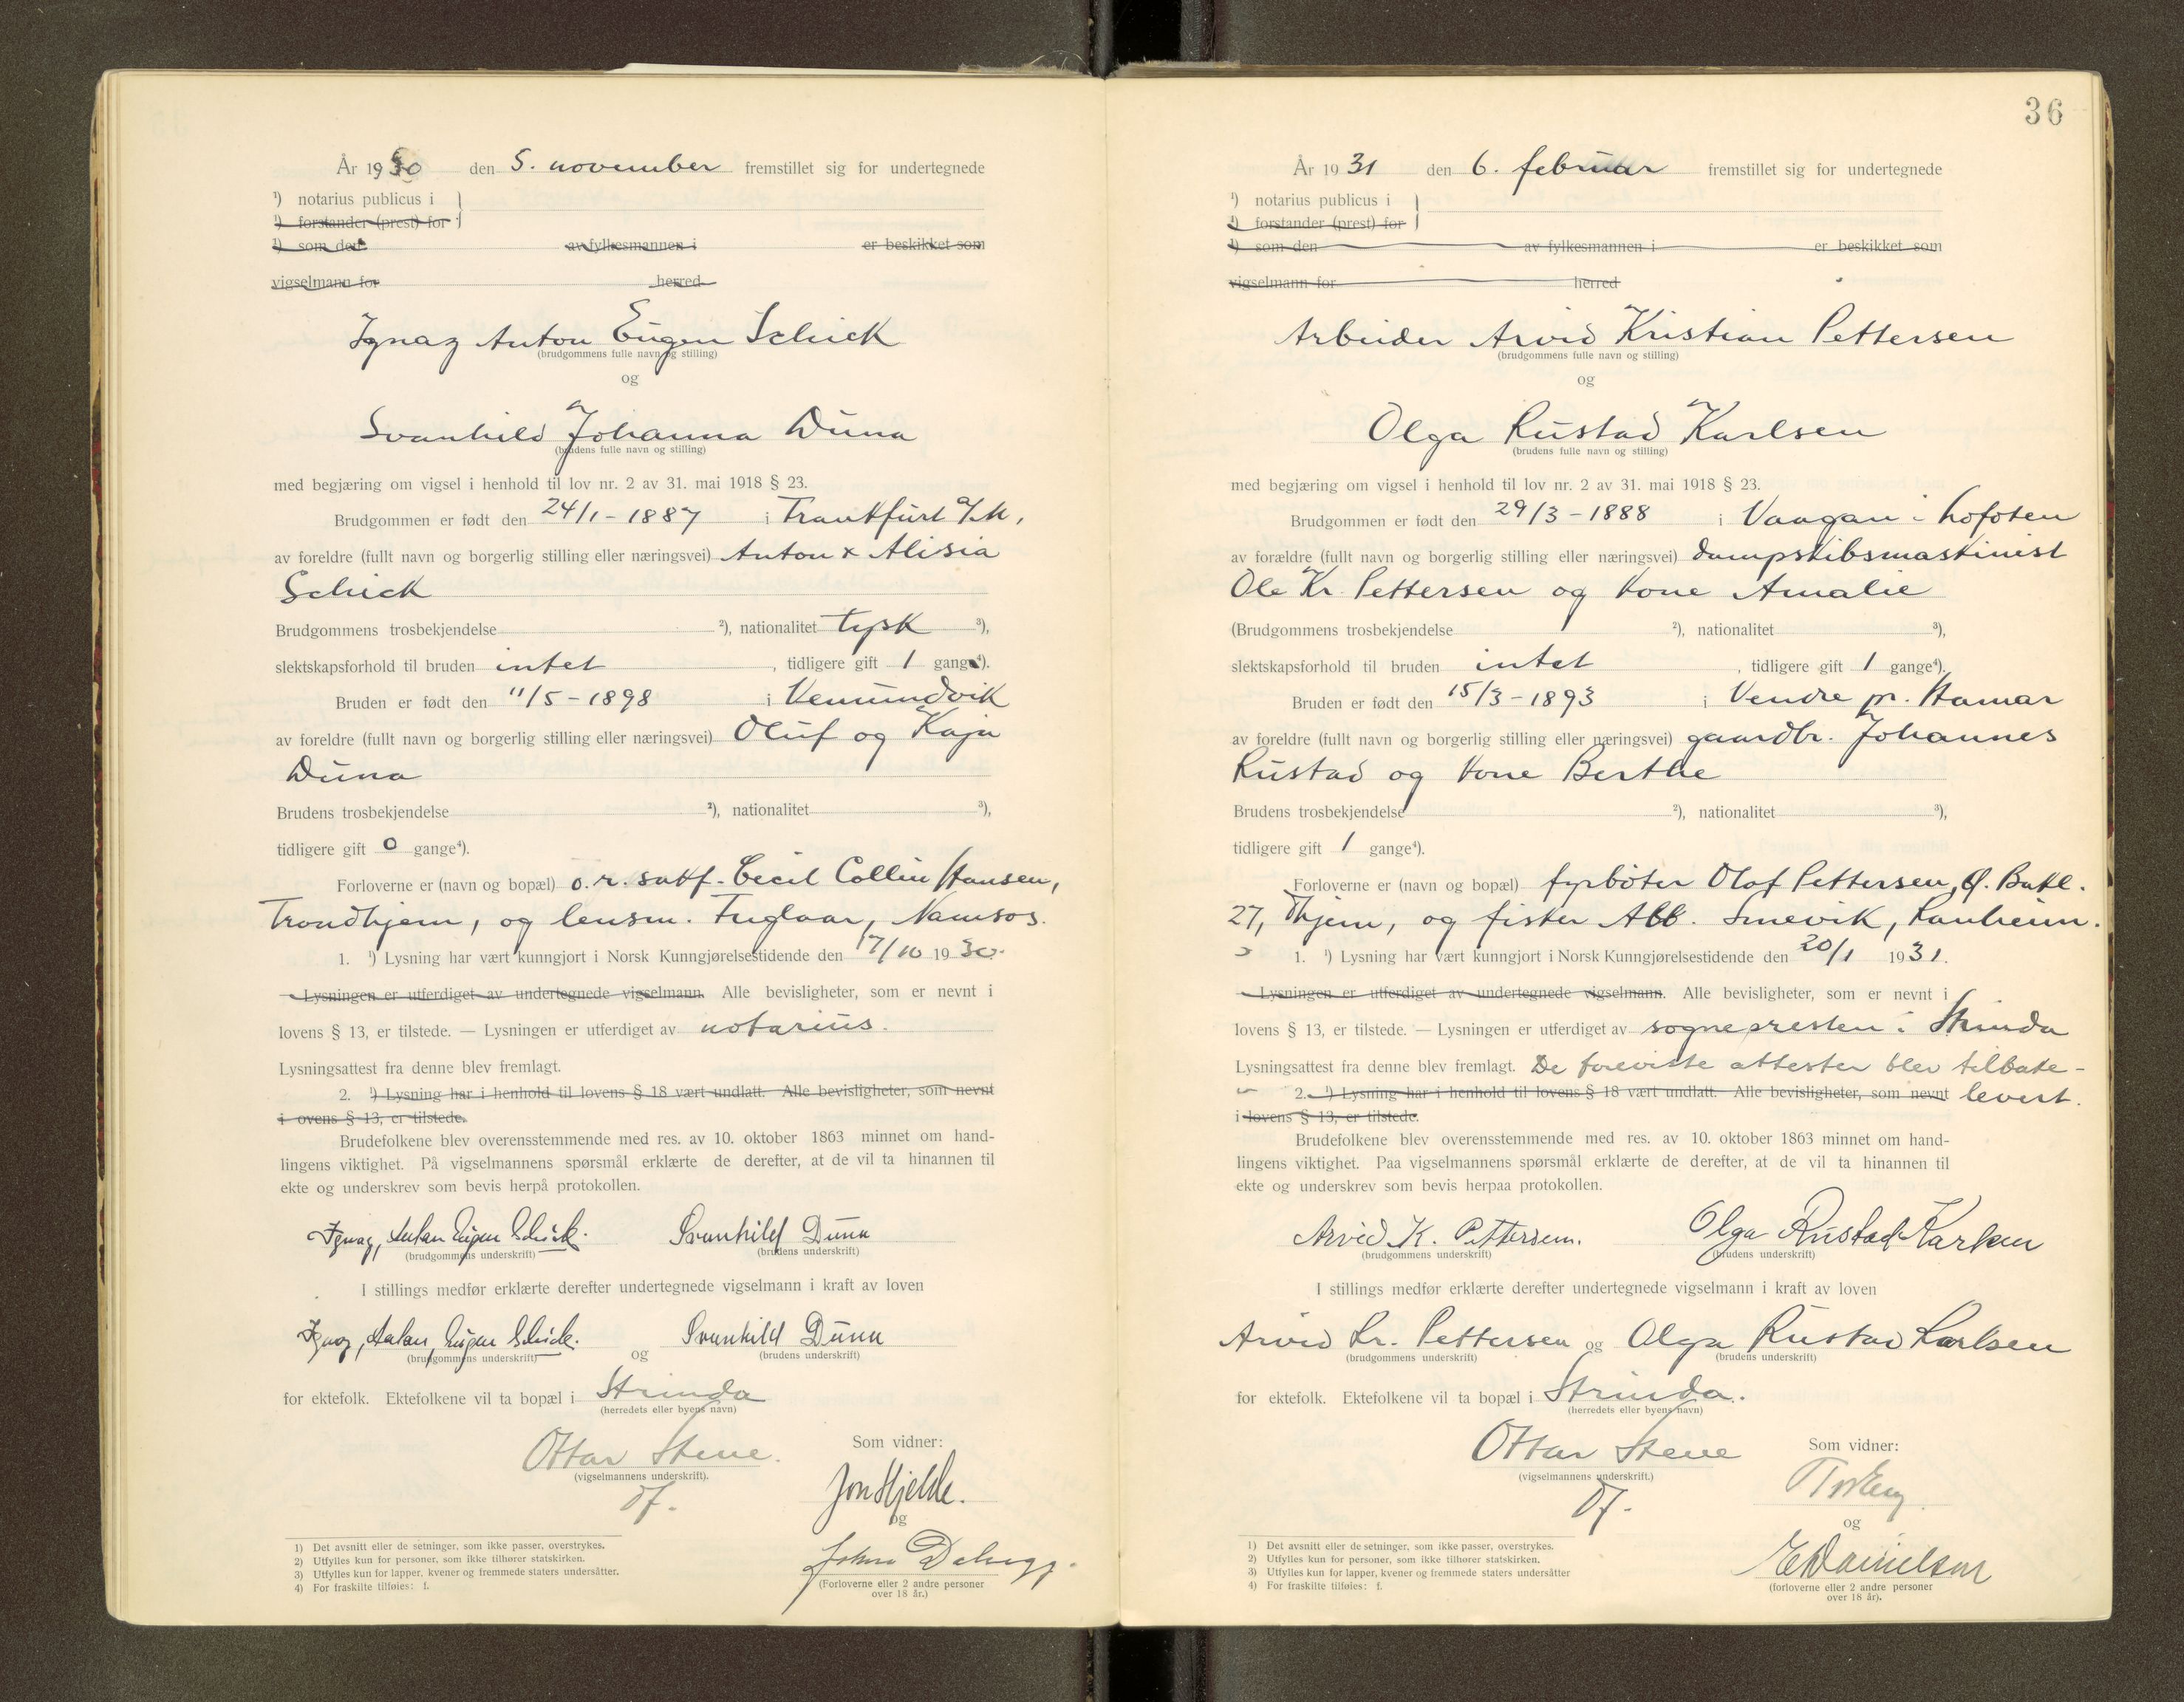 År 1930 den 5. november fremstillet sig for undertegnede
¹) notarius publicus i
¹) forstander (prest) for
¹) som den av fylkesmannen i er beskikket som
vigselmann for herred
Ignaz Anton Eugen Schick
(brudgommens fulle navn og stilling)
og
Svanhild Johanna Duna
(brudens fulle navn og stilling)
med begjæring om vigsel i henhold til lov nr. 2 av 31. mai 1918 § 23.
Brudgommen er født den 24/1 - 1887 i Frankfurt a/M,
av foreldre (fullt navn og borgerlig stilling eller næringsvei) Anton & Alisia
Schick
Brudgommens trosbekjendelse ²), nationalitet tysk ³),
slektskapsforhold til bruden intet, tidligere gift 1 gange⁴).
Bruden er født den 11/5 - 1898 i Vemundvik
av foreldre (fullt navn og borgerlig stilling eller næringsvei) Oluf og Kaja
Duna
Brudens trosbekjendelse ²), nationalitet ³),
tidligere gift 0 gange⁴).
Forloverne er (navn og bopæl) o.r.sakf. Cecil Collin Hansen,
Trondhjem, og lensm. Fuglaar, Namsos.
1. ¹) Lysning har vært kunngjort i Norsk Kunngjørelsestidende den 17/10 1930.
Lysningen er utferdiget av undertegnede vigselmann. Alle bevisligheter, som er nevnt i
lovens § 13, er tilstede. — Lysningen er utferdiget av notarius.
Lysningsattest fra denne blev fremlagt.
2. ¹) Lysning har i henhold til lovens § 18 vært undlatt. Alle bevisligheter, som nevnt
i ovens § 13, er tilstede.
Brudefolkene blev overensstemmende med res. av 10. oktober 1863 minnet om hand-
lingens viktighet. På vigselmannens spørsmål erklærte de derefter, at de vil ta hinannen til
ekte og underskrev som bevis herpå protokollen.
Ignaz, Anton Eugen Schick. Svanhild Duna
(brudgommens underskrift) (brudens underskrift)
I stillings medfør erklærte derefter undertegnede vigselmann i kraft av loven
Ignaz, Anton, Eugen Schick. og Svanhild Duna
(brudgommens underskrift) (brudens underskrift)
for ektefolk. Ektefolkene vil ta bopæl i Strinda
(herredets eller byens navn)
Ottar Stene.
(vigselmannens underskrift).
Df.
Som vidner:
Jon Hjelde.
og
Johan
(Forloverne eller 2 andre personer
over 18 år.)
1) Det avsnitt eller de setninger, som ikke passer, overstrykes.
2) Utfylles kun for personer, som ikke tilhører statskirken.
3) Utfylles kun for lapper, kvener og fremmede staters undersåtter.
4) For fraskilte tilføies: f.
36
År 1931 den 6. februar fremstillet sig for undertegnede
¹) notarius publicus i
¹) forstander (prest) for
¹) som den av fylkesmannen i er beskikket som
vigselmann for herred
Arbeider Arvid Kristian Pettersen
(brudgommens fulle navn og stilling)
og
Olga Rustad Karlsen
(brudens fulle navn og stilling)
med begjæring om vigsel i henhold til lov nr. 2 av 31. mai 1918 § 23.
Brudgommen er født den 29/3 - 1888 i Vaagan i Lofoten
av forældre (fullt navn og borgerlig stilling eller næringsvei) dampskibsmaskinist
Ole Kr. Pettersen og kone Amalie
(Brudgommens trosbekjendelse ²), nationalitet ³),
slektskapsforhold til bruden intet, tidligere gift 1 gange⁴).
Bruden er født den 15/3 - 1893 i Vendre pr. Hamar
av foreldre (fullt navn og borgerlig stilling eller næringsvei) gaardbr. Johannes
Rustad og kone Berthe
Brudens trosbekjendelse ²), nationalitet ³),
tidligere gift 1 gange⁴).
Forloverne er (navn og bopæl) fyrbøter Olaf Pettersen, Ø. Bakl.
27, Thjem, og fisker Alb. Smevik, Ranheim.
1. ¹) Lysning har vært kunngjort i Norsk Kunngjørelsestidende den 20/1 1931.
Lysningen er utferdiget av undertegnede vigselmann. Alle bevisligheter, som er nevnt i
lovens § 13, er tilstede. — Lysningen er utferdiget av sognepresten i Strinda
Lysningsattest fra denne blev fremlagt. De foreviste attester blev tilbake-
2. ¹) Lysning har i henhold til lovens § 18 vært undlatt. Alle bevisligheter, som nevnt levert.
i lovens § 13, er tilstede.
Brudefolkene blev overensstemmende med res. av 10. oktober 1863 minnet om hand-
lingens viktighet. Paa vigselmannens spørsmål erklærte de derefter, at de vil ta hinannen til
ekte og underskrev som bevis herpaa protokollen.
Arvid K. Pettersen. Olga Rustad Karlsen
(brudgommens underskrift) (brudens underskrift)
I stillings medfør erklærte derefter undertegnede vigselmann i kraft av loven
Arvid Kr. Pettersen og Olga Rustad Karlsen
(brudgommens underskrift) (brudens underskrift)
for ektefolk. Ektefolkene vil ta bopæl i Strinda.
(herredets eller byens navn)
Ottar Stene
(vigselmannens underskrift.)
Df.
Som vidner:
og
E Danielsen
(forloverne eller 2 andre personer
over 18 år).
1) Det avsnitt eller de setninger, som ikke passer, overstrykes.
2) Utfylles kun for personer, som ikke tilhører statskirken.
3) Utfylles kun for lapper, kvener og fremmede staters undersåtter
4) For fraskilte tilføies: f.